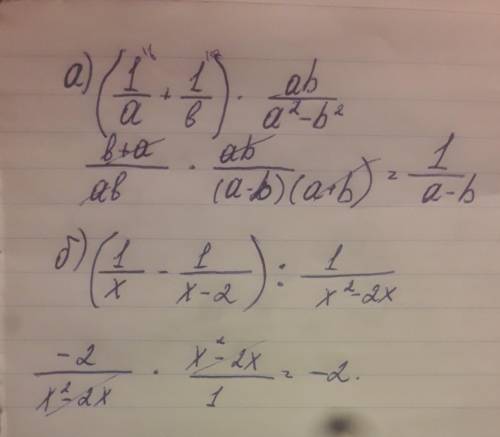 а) (1/a + 1/в) · ab/a²-b²
в+a/aв · ab/(a-b)(a+b) = 1/a-b
б) (1/x - 1/x-2) : 1/x²-2x
-2/x²-2x · x²-2x/1 = -2.